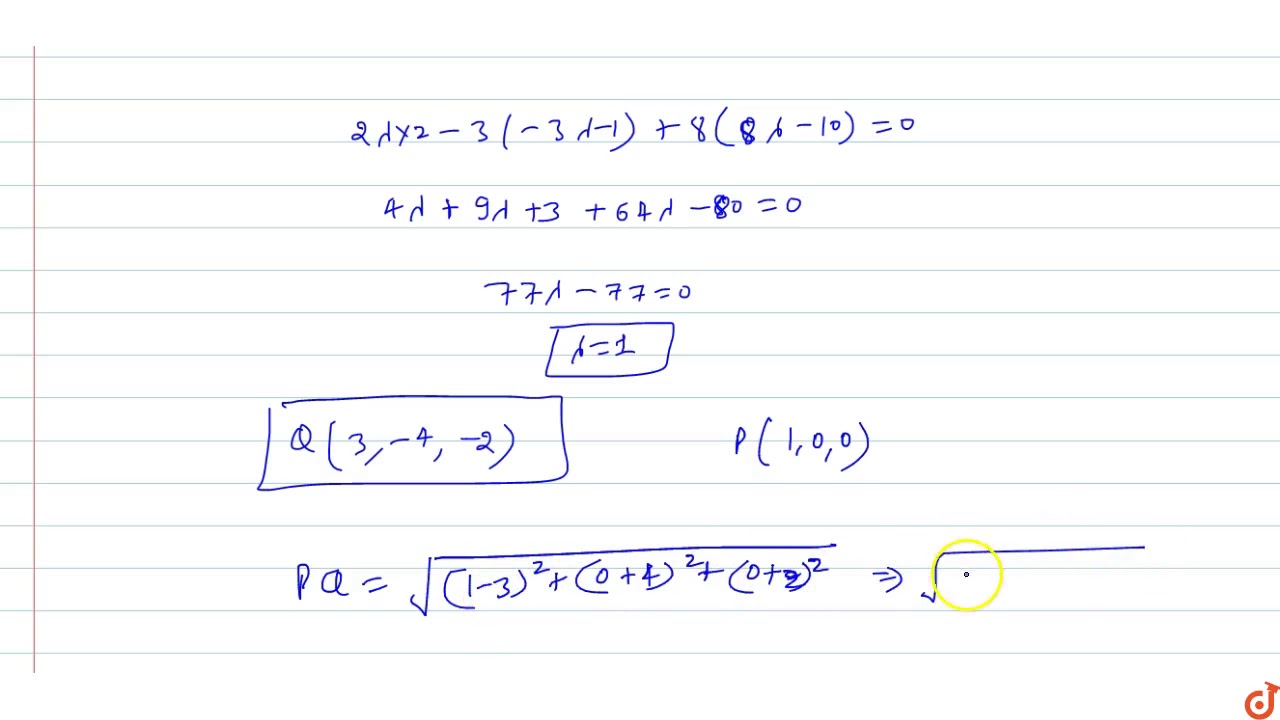 2λ×2 - 3(-3λ-1) + 8(8λ-10) = 0
4λ + 9λ + 3 + 64λ - 80 = 0
77λ - 77 = 0
λ = 1
Q(3, -4, -2) P(1, 0, 0)
PQ = √((1-3)² + (0+4)² + (0+2)²) ⇒ √